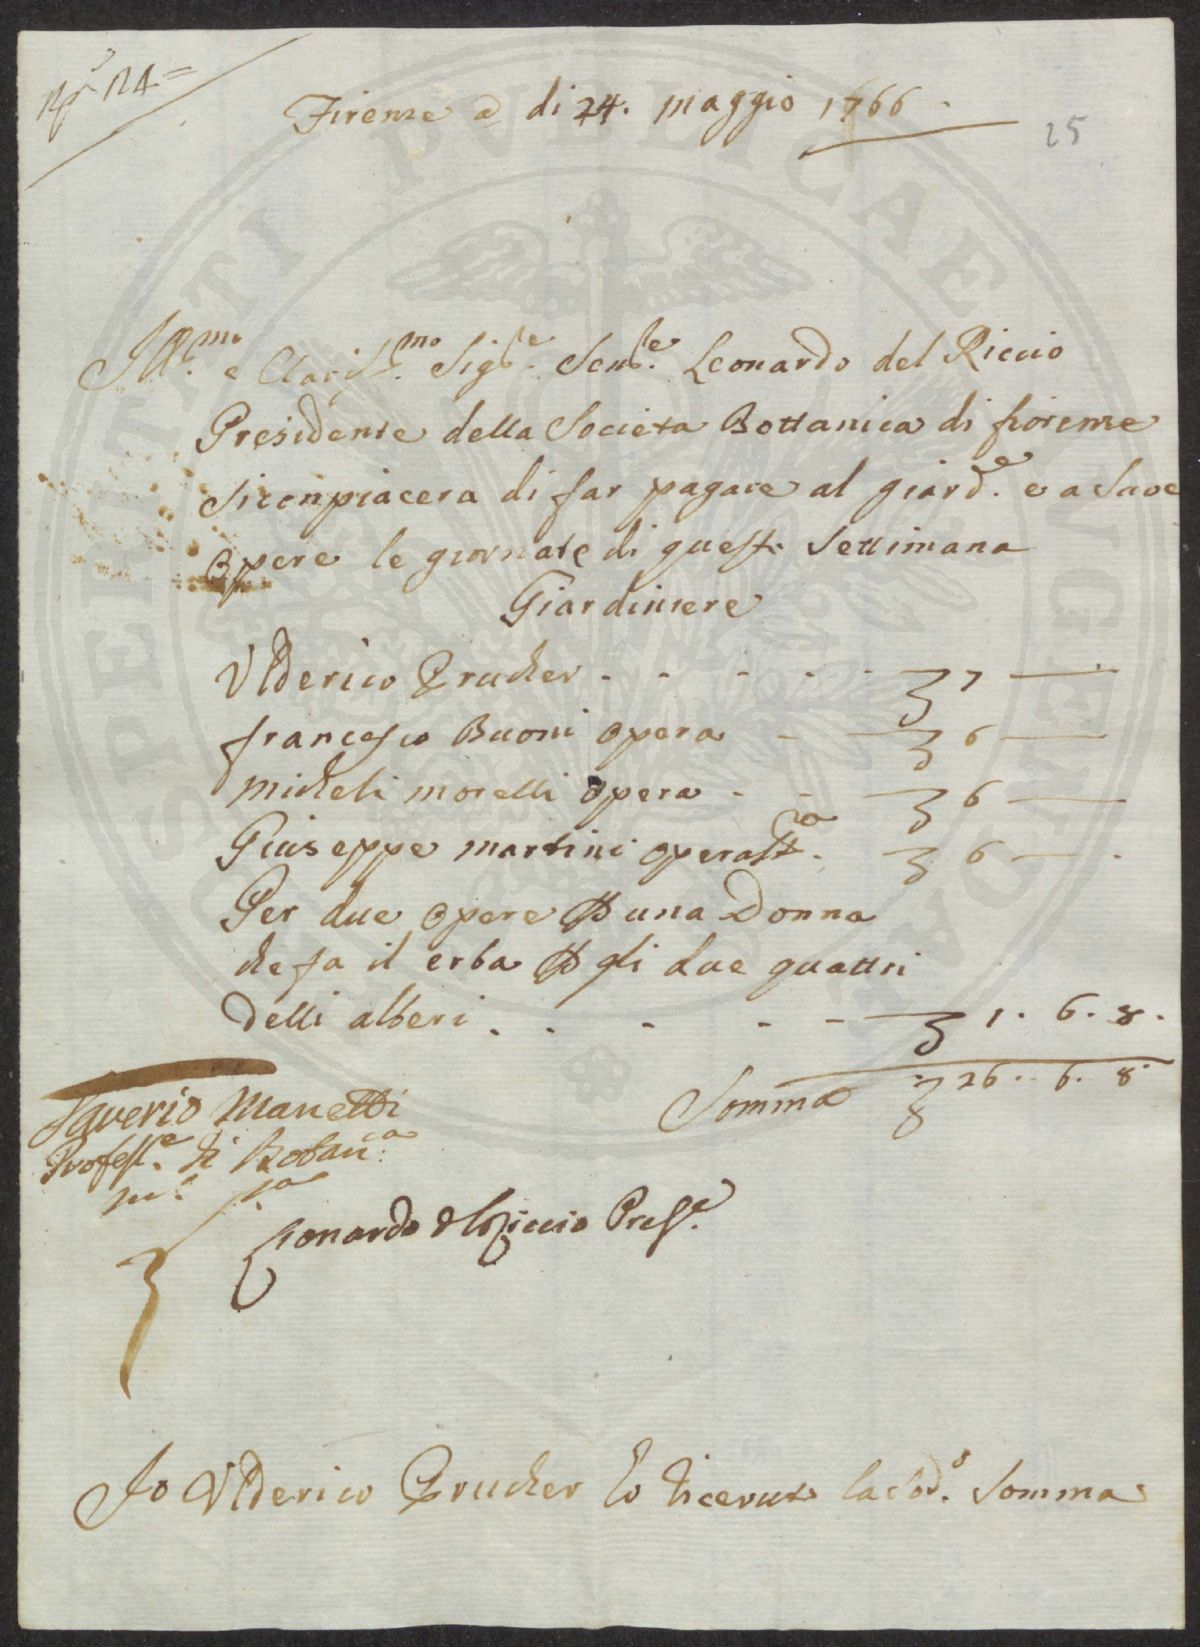 N.º 124=
Firenze a di 24. maggio 1766.
25
Ill.mo e Clariss.mo Sig.re Sen.re Leonardo del Riccio
Presidente della Societa Bottanica di fiorenze
si conpiacera di far pagare al giard.e e a sue
opere le giornate di questa settimana
Giardiniere
Vlderico Prucher . - - . . - 7 —
francesco Buoni opera - — 6 —
micheli morelli opera - - — 6 —
Giuseppe martini opera — 6 — .
Per due opere una Donna
che fa il erba gli due quattri
delli alberi . . - - - — 1 . 6 . 8 .
Somma 26 . 6 . 8 .
Saverio Manetti
Profess.e di Botan.ca
m.o p.a
Leonardo del Riccio Pres.e
Io Vlderico Prucher ho Ricevuto la sod.a somma
SPERITATI PVBLICAE